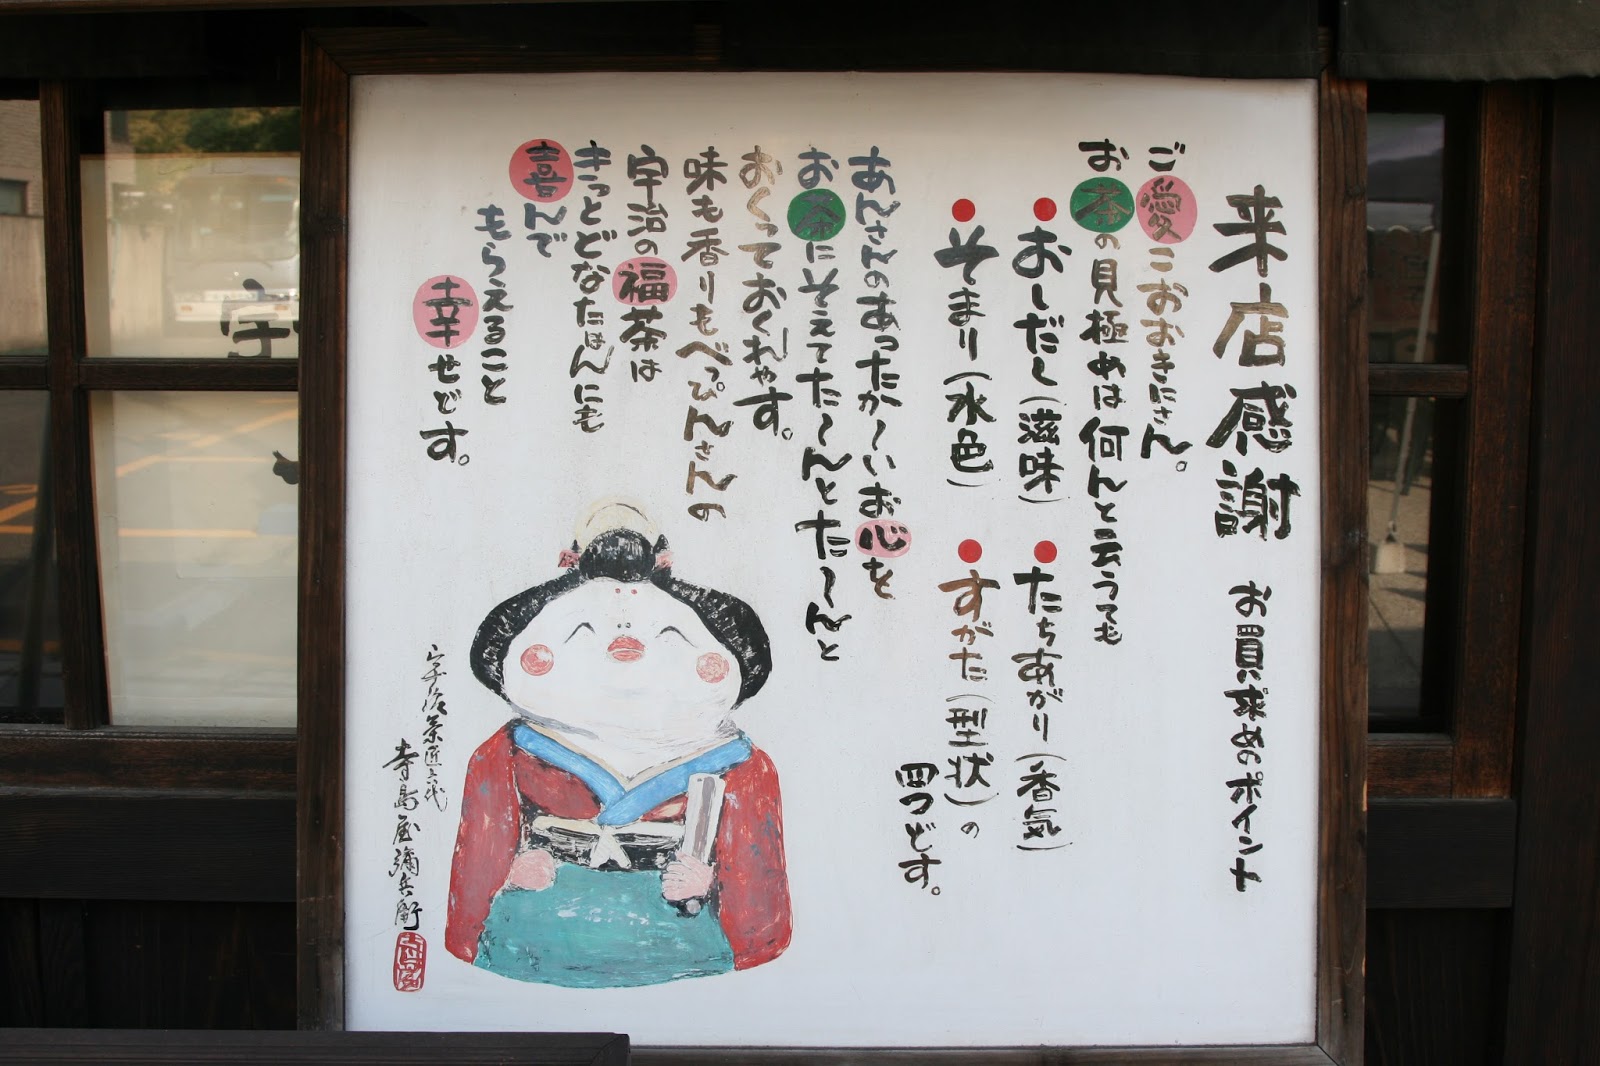 来店感謝 お買い求めのポイント
ご愛こおおきにさん。
お茶の見極めは何んと云うても
●おしだし(滋味) ●たちあがり(香気)
●そまり(水色) ●すがた(型状)の
四つどす。
あんさんのあったか〜いお心を
お茶にそえてた〜んとた〜んと
おくっておくれやす。
味も香りもべっぴんさんの
宇治の福茶は
きっとどなたはんにも
喜んで
もらえること
幸せどす。
宇治茶匠六代
寺島屋弥兵衛
宇